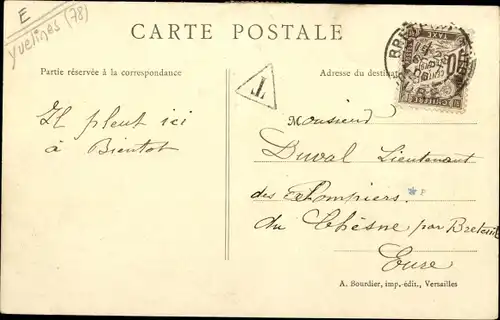 E
Yvelines (78)
CARTE POSTALE
Partie réservée à la correspondance
Adresse du destinat
T
Il pleut ici
à Bientot
Monsieur
Duval Lieutenant
des Pompiers
du Chésne par Breteuil
Eure
A. Bourdier, imp.-édit., Versailles